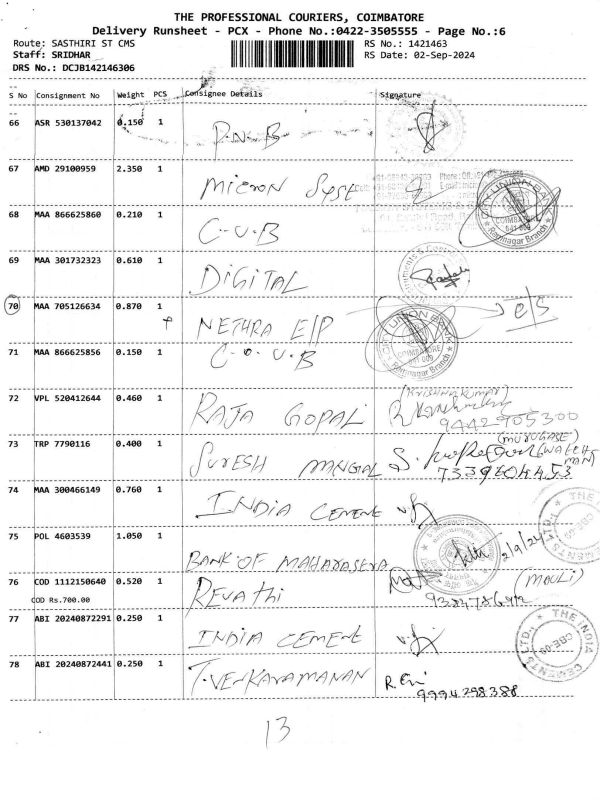 THE PROFESSIONAL COURIERS, COIMBATORE
Delivery Runsheet - PCX - Phone No.:0422-3505555 - Page No.:6
Route: SASTHIRI ST CMS RS No.: 1421463
Staff: SRIDHAR RS Date: 02-Sep-2024
DRS No.: DCJB142146306
S No Consignment No Weight PCS Consignee Details Signature
66 ASR 530137042 0.150 1 P.N.B
67 AMD 29100959 2.350 1 Micron Syst
68 MAA 866625860 0.210 1 C-U-B
CITY UNION BANK
COIMBATORE
641 009
Ramnagar Branch
69 MAA 301732323 0.610 1 DIGITAL
70 MAA 705126634 0.870 1 NETHRA E/P e/s
CITY UNION BANK
COIMBATORE
641 009
Ramnagar Branch
71 MAA 866625856 0.150 1 C-U-B
72 VPL 520412644 0.460 1 RAJA GOPAL (Krishnakumar)
9442905300
73 TRP 7790116 0.400 1 SURESH MANGAL (MURUGASE)
(WATCH MAN)
7339604453
74 MAA 300466149 0.760 1 INDIA CEMENE
75 POL 4603539 1.050 1 BANK OF MAHARASERA 2/9/24
76 COD 1112150640 0.520 1 REVAthi (MOULI)
COD Rs.700.00
77 ABI 20240872291 0.250 1 INDIA CEMENE
THE INDIA CEMENTS LTD.,
CBE-09
78 ABI 20240872441 0.250 1 T.VENKARAMANAN
9994298388
13